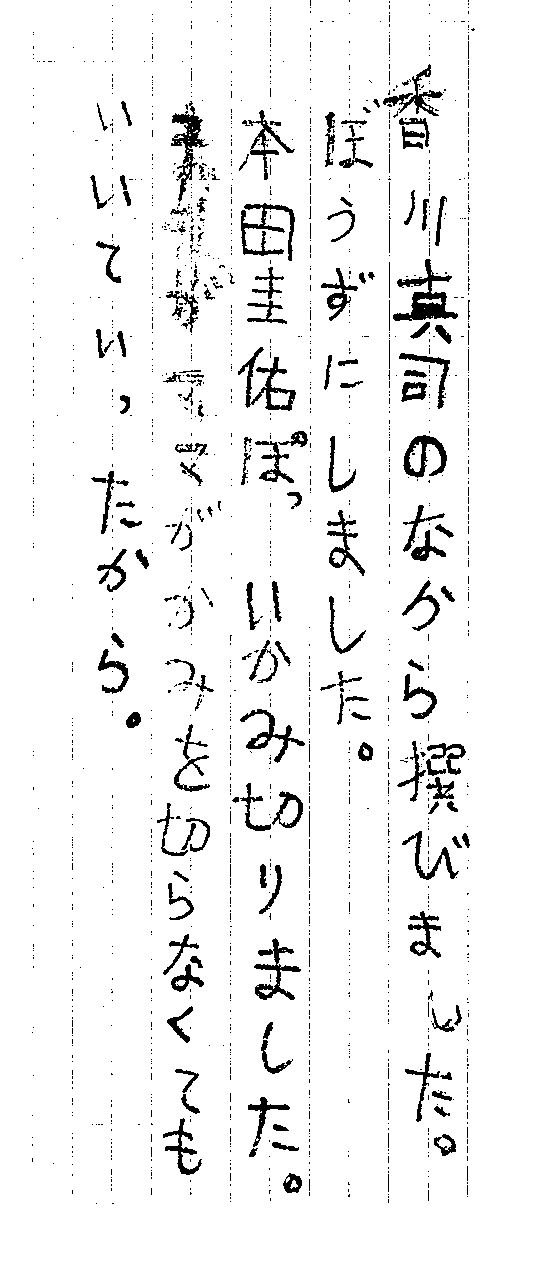 香川真司のなから撰びました。
ぼうずにしました。
本田圭佑ぽっいかみ切りました。
ママがかみを切らなくても
いいていったから。